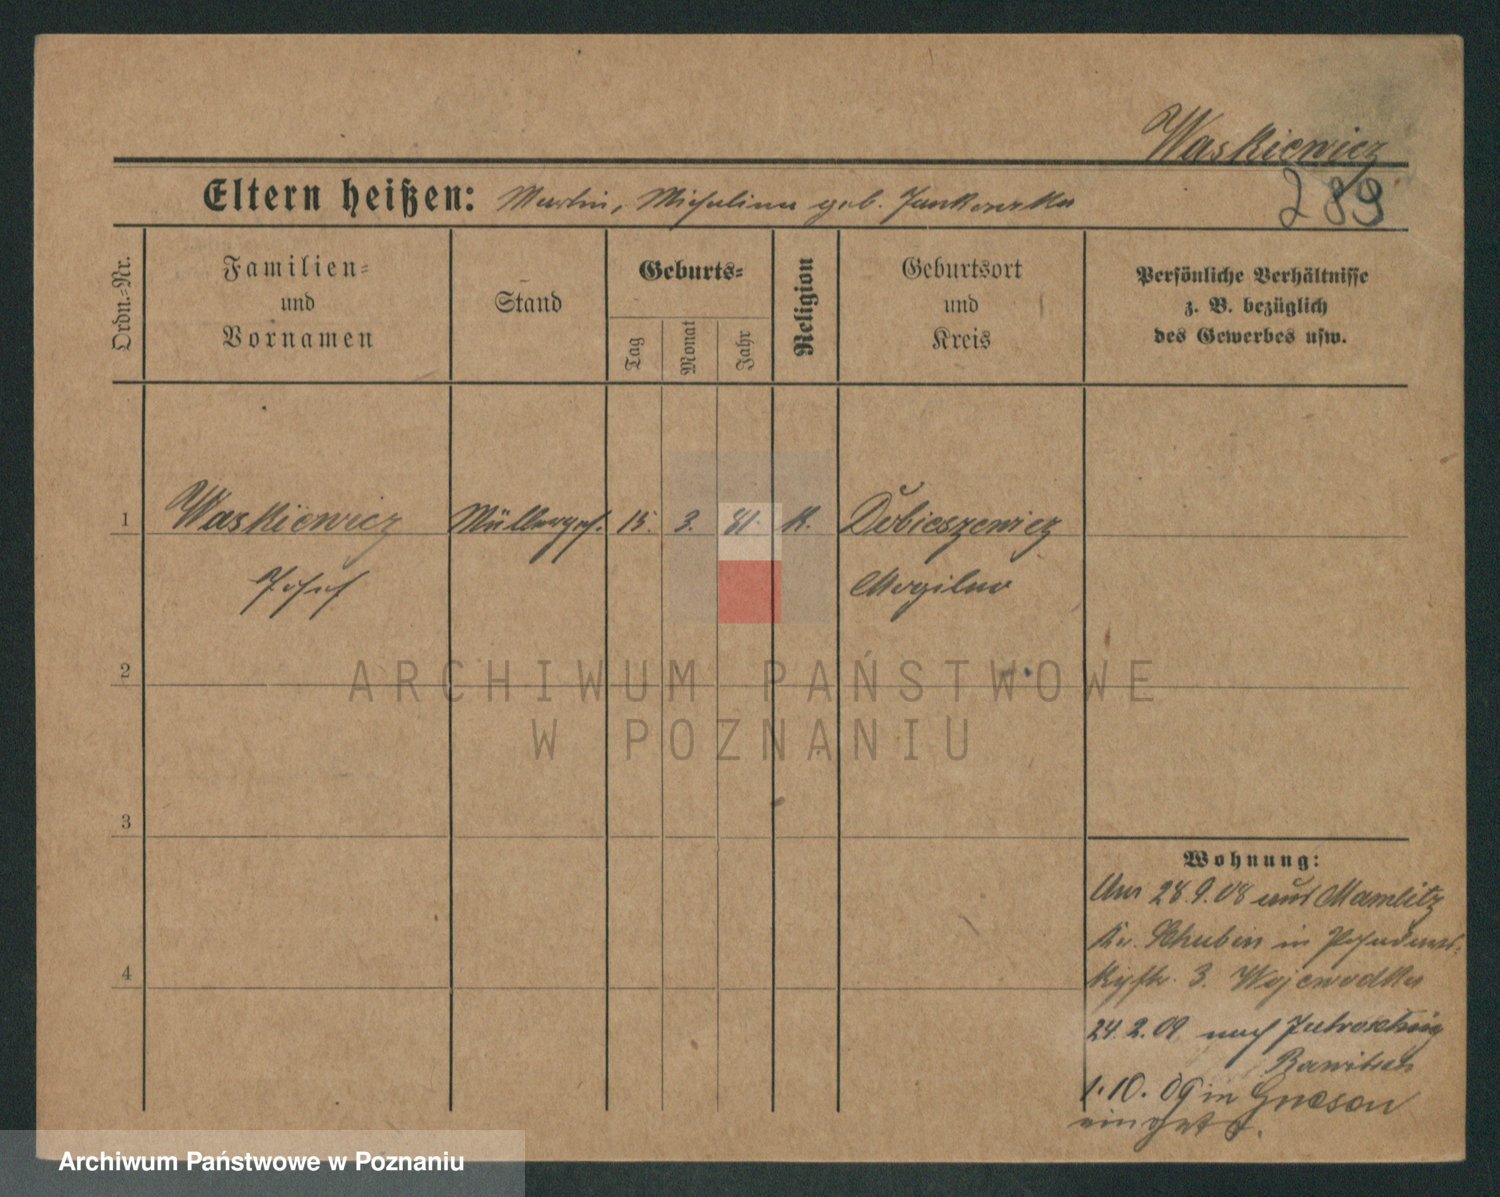 Waskiewicz
289
Eltern heißen: Martin, Michalina geb. Jankowska
Ordn.-Nr.
Familien-
und
Vornamen
Stand
Geburts-
Tag
Monat
Jahr
Religion
Geburtsort
und
Kreis
Persönliche Verhältnisse
z. B. bezüglich
des Gewerbes usw.
1 Waskiewicz Müllerges. 15. 3. 81. K. Dobieszewicz
Josef Mogilno
2
ARCHIWUM PAŃSTWOWE
W POZNANIU
3
4
Wohnung:
Am 28.9.08 aus Mamlitz
Kr. Schubin in
3. Wojewodka
24.2.09 nach Jutroschin
Rawitsch
1.10.09 in Gnesen
Archiwum Państwowe w Poznaniu